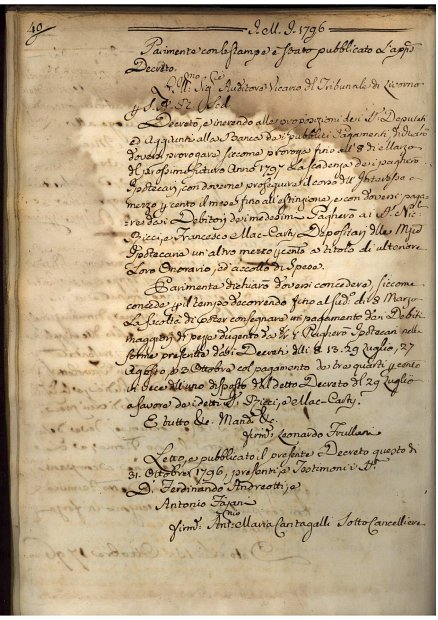 40
J. M. J. 1796
Parimente con le stampe è stato pubblicato l'app.
Decreto.
Sig. Auditore Vicario del Tribunale di Livorno
Decreto, e inerendo alle proposizioni dei SS. Deputati
ed Aggiunti alla Stanza dei pubblici Pagamenti, dichiarò
doversi prorogare siccome prorogò fino all' 8 di Marzo
del prossimo futuro Anno 1797 la scadenza dei pagherò
Ipotecari, con doverne proseguire il corso dell' Interesse a
mezzo p cento il mese fino all'estinzione, e con doversi paga-
re dai Debitori dei medesimi Pagherò ai SS. Nic.
Ricci, e Francesco Mac-Carty Depositari delle
Ipotecarie un' altro mezzo p cento a titolo di ulteriore
Loro Onorario, ed accollo di Spese.
Parimente dichiarò doversi concedere, siccome
concede p il tempo decorrendo fino al sud. dì 8 Marzo
la facoltà di poter consegnare in pagamento dai Debiti
maggiori di pezze dugento da 8 r. Pagherò Ipotecari nelle
forme prescritte dai Decreti dell' 8. 13. 29 Luglio, 27
Agosto, e 3 Ottobre col pagamento di tre quarti p cento
in vece dell' uno disposto dal detto Decreto del 29 Luglio
a favore dei detti SS. Ricci, e Mac-Carty.
E tutto &c. Mand. &c.
Firm. Leonardo Frullani
Letto, e pubblicato il presente Decreto questo dì
31. Ottobre 1796, presenti, e Testimoni i SS.
D. Ferdinando Andreotti, e
Antonio Fajani
Firm. Ant. Maria Cantagalli Sotto Cancelliere